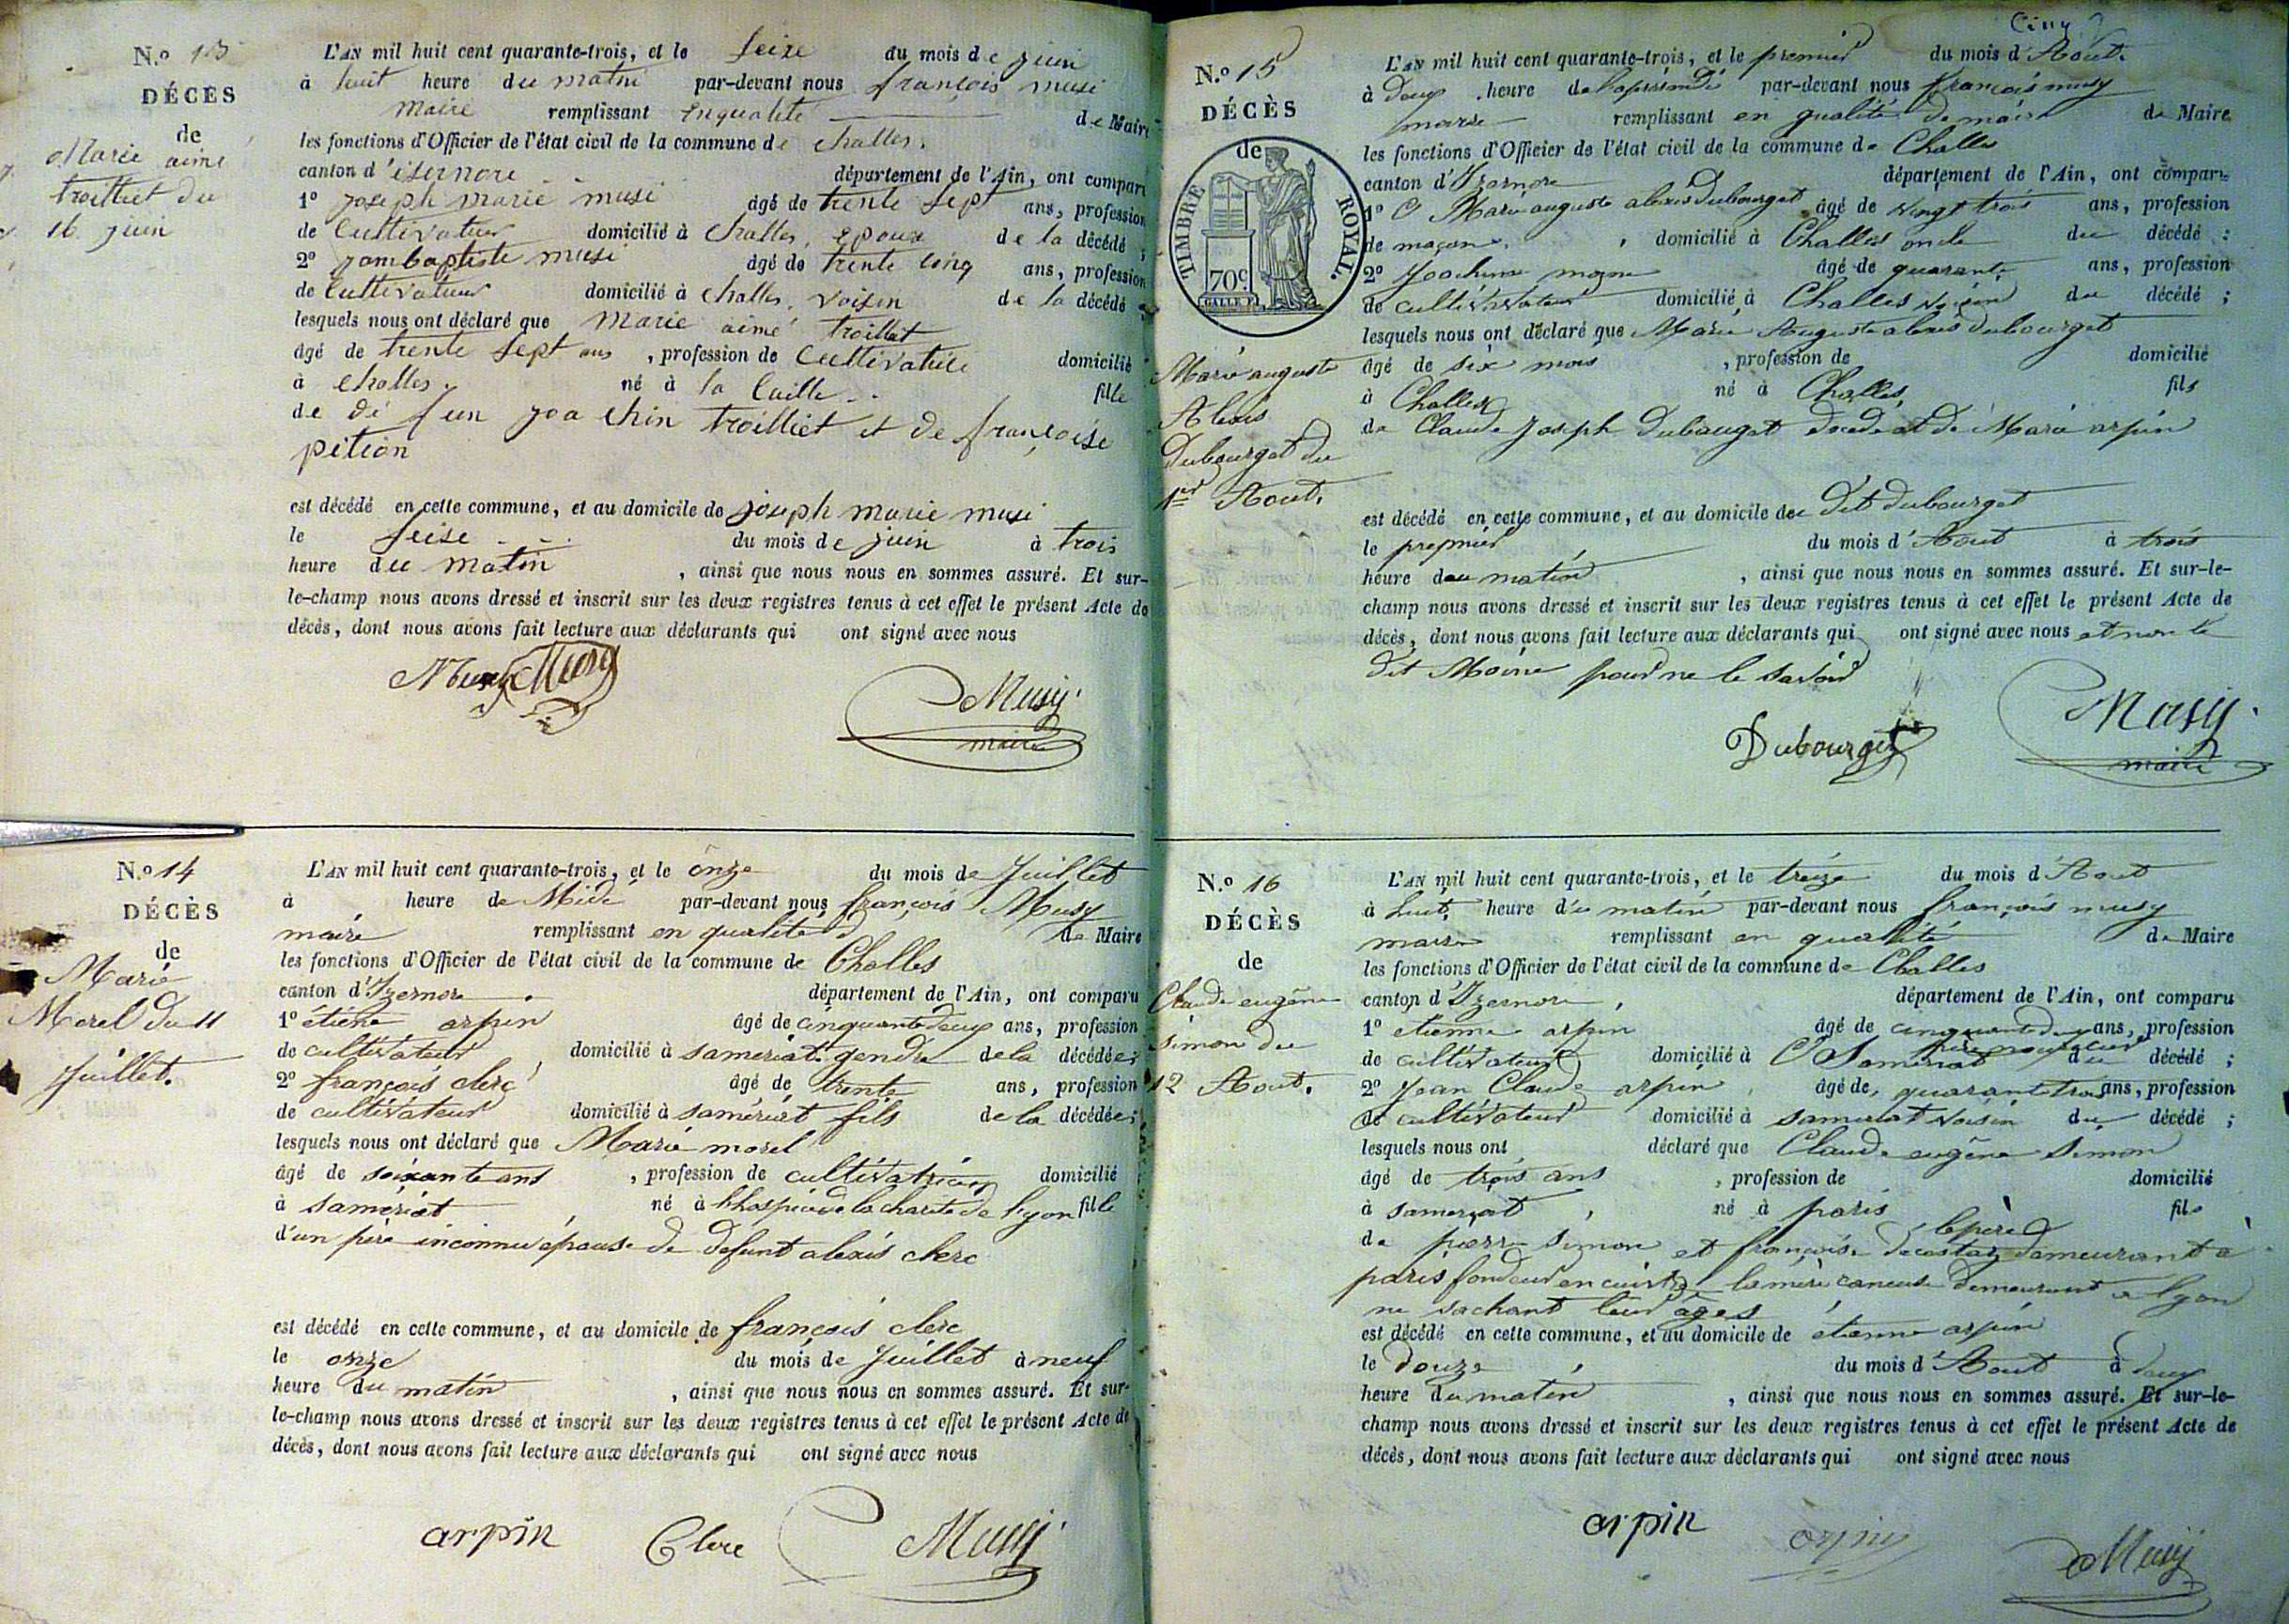 N.º 13
DÉCÈS
de
Marie aimé
troilliet du
16 juin
L'AN mil huit cent quarante-trois, et le seize du mois de juin
à huit heure du matin par-devant nous françois musi
maire remplissant enqualité de Maire
les fonctions d'Officier de l'état civil de la commune de challes.
canton d'isernore département de l'Ain, ont comparu
1º joseph marie musi âgé de trente sept ans, profession
de Cultivateur domicilié à challes, epoux de la décédé ;
2º jambaptiste musi âgé de trente cinq ans, profession
de Cultivateur domicilié à challes, voisin de la décédé ;
lesquels nous ont déclaré que Marie aimé troilliet
âgé de trente sept ans , profession de Cultivatrice domicilié
à challes né à la fille
de de feu joachin troilliet et de françoise
pétion
est décédé en cette commune, et au domicile de joseph marie musi
le seise du mois de juin à trois
heure du matin , ainsi que nous nous en sommes assuré. Et sur-
le-champ nous avons dressé et inscrit sur les deux registres tenus à cet effet le présent Acte de
décès, dont nous avons fait lecture aux déclarants qui ont signé avec nous
Musy Musy
Musy
maire
N.º 14
DÉCÈS
de
Marie
Morel du 11
Juillet.
L'AN mil huit cent quarante-trois, et le onze du mois de Juillet
à heure de Midi par-devant nous françois Musy
maire remplissant en qualité de Maire
les fonctions d'Officier de l'état civil de la commune de Challes
canton d'Izernore département de l'Ain, ont comparu
1º étiene arpin âgé de cinquante deux ans, profession
de cultivateur domicilié à samériat gendre de la décédée ;
2º françois clerc âgé de trente ans, profession
de cultivateur domicilié à samériat fils de la décédée ;
lesquels nous ont déclaré que Marie morel
âgé de soixante ans , profession de cultivatrice domicilié
à samériat , né à l'hospice de la charité de lyon fille
d'un père inconnu épouse de defunt alexis clerc
est décédé en cette commune, et au domicile de françois clerc
le onze du mois de Juillet à neuf
heure du matin , ainsi que nous nous en sommes assuré. Et sur-
le-champ nous avons dressé et inscrit sur les deux registres tenus à cet effet le présent Acte de
décès, dont nous avons fait lecture aux déclarants qui ont signé avec nous
arpin Clerc Musy
Cinq
N.º 15
DÉCÈS
de
TIMBRE ROYAL.
70c.
GALLE F.
Marie auguste
Alexis
Dubourget du
1er Aout.
L'AN mil huit cent quarante-trois, et le premier du mois d'Aout.
à deux heure de l'aprèsmidi par-devant nous françois musy
maire remplissant en qualité de maire de Maire
les fonctions d'Officier de l'état civil de la commune de Challes
canton d'Izernore département de l'Ain, ont comparu
1º Marie auguste alexis Dubourget âgé de vingt trois ans, profession
de maçon, domicilié à Challes oncle du décédé ;
2º Joachim moine âgé de quarante ans, profession
de cultivateur domicilié à Challes voisin du décédé ;
lesquels nous ont déclaré que Marie Auguste alexis dubourget
âgé de six mois , profession de domicilié
à Challes né à Challes, fils
de Claude Joseph Dubourget décédé et de Marie arpin
est décédé en cette commune, et au domicile du dit dubourget
le premier du mois d'Aout à trois
heure du matin , ainsi que nous nous en sommes assuré. Et sur-le-
champ nous avons dressé et inscrit sur les deux registres tenus à cet effet le présent Acte de
décès, dont nous avons fait lecture aux déclarants qui ont signé avec nous et non le
dit Moine pour ne le savoir
Dubourget
Musy
maire
N.º 16
DÉCÈS
de
Claude eugêne
simon du
12 Aout.
L'AN mil huit cent quarante-trois, et le treize du mois d'Aout
à huit heure du matin par-devant nous françois musy
maire remplissant en qualité de Maire
les fonctions d'Officier de l'état civil de la commune de Challes
canton d'Izernore, département de l'Ain, ont comparu
1º etienne arpin âgé de cinquante deux ans, profession
père nourricier
de cultivateur domicilié à Samériat du décédé ;
2º Jean Claude arpin âgé de quarante trois ans, profession
de cultivateur domicilié à samériat voisin du décédé ;
lesquels nous ont déclaré que Claude eugêne Simon
âgé de trois ans , profession de domicilié
à samériat , né à paris fils
le père
de pierre Simon et françoise demeurant à
paris fondeur en cuivre la mère demeurant a lyon
ne sachant leur âges
est décédé en cette commune, et au domicile de étienne arpin
le douze du mois d'Aout à deux
heure du matin , ainsi que nous nous en sommes assuré. Et sur-le-
champ nous avons dressé et inscrit sur les deux registres tenus à cet effet le présent Acte de
décès, dont nous avons fait lecture aux déclarants qui ont signé avec nous
arpin arpin Musy